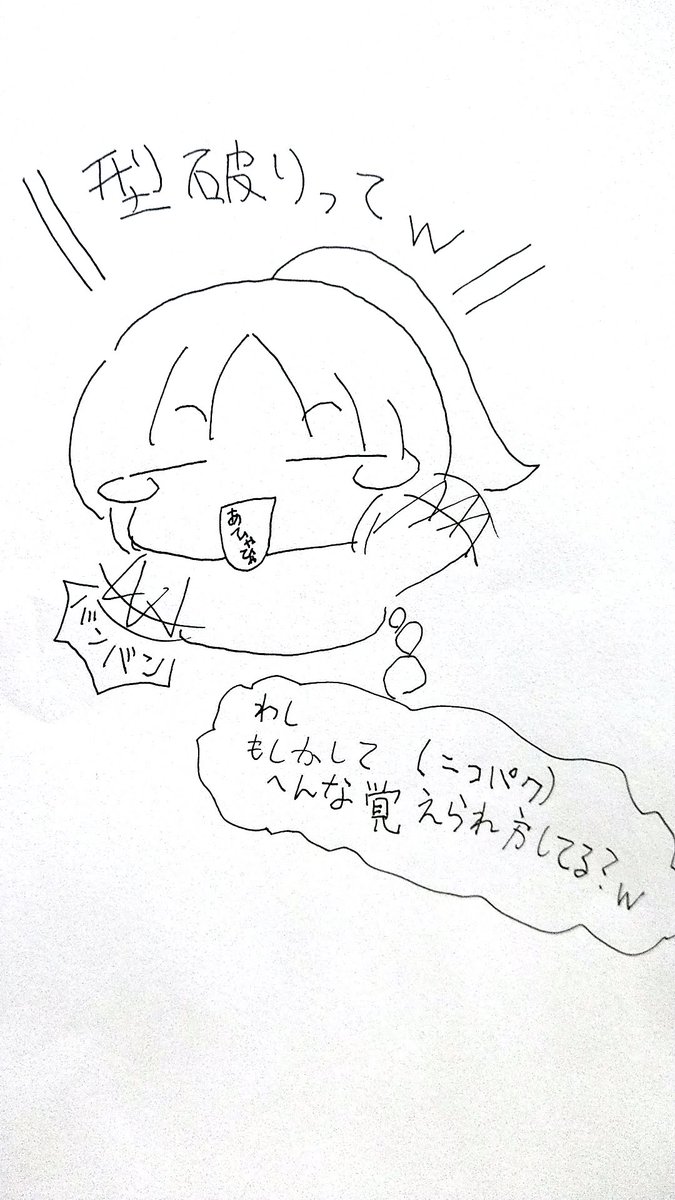 型破りってw
あひゃひゃ
バンバン
わし
もしかして (ニコパク)
へんな覚えられ方してる?w